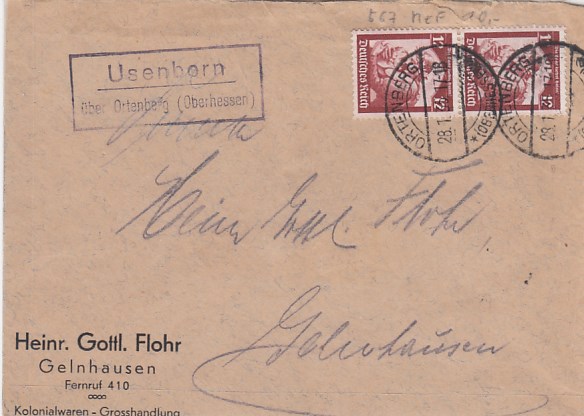 567 MeF 10,-
Usenborn
über Ortenberg (Oberhessen)
Deutsches Reich 12
Deutsches Reich 12
ORTENBERG
28.1.
ORTENBERG
28.1.
Heinr. Gottl. Flohr
Gelnhausen
Heinr. Gottl. Flohr
Gelnhausen
Fernruf 410
Kolonialwaren - Grosshandlung